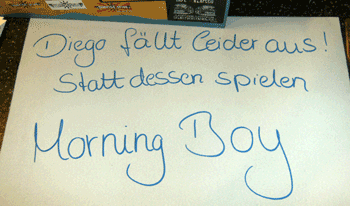 Diego fällt leider aus!
Statt dessen spielen
Morning Boy